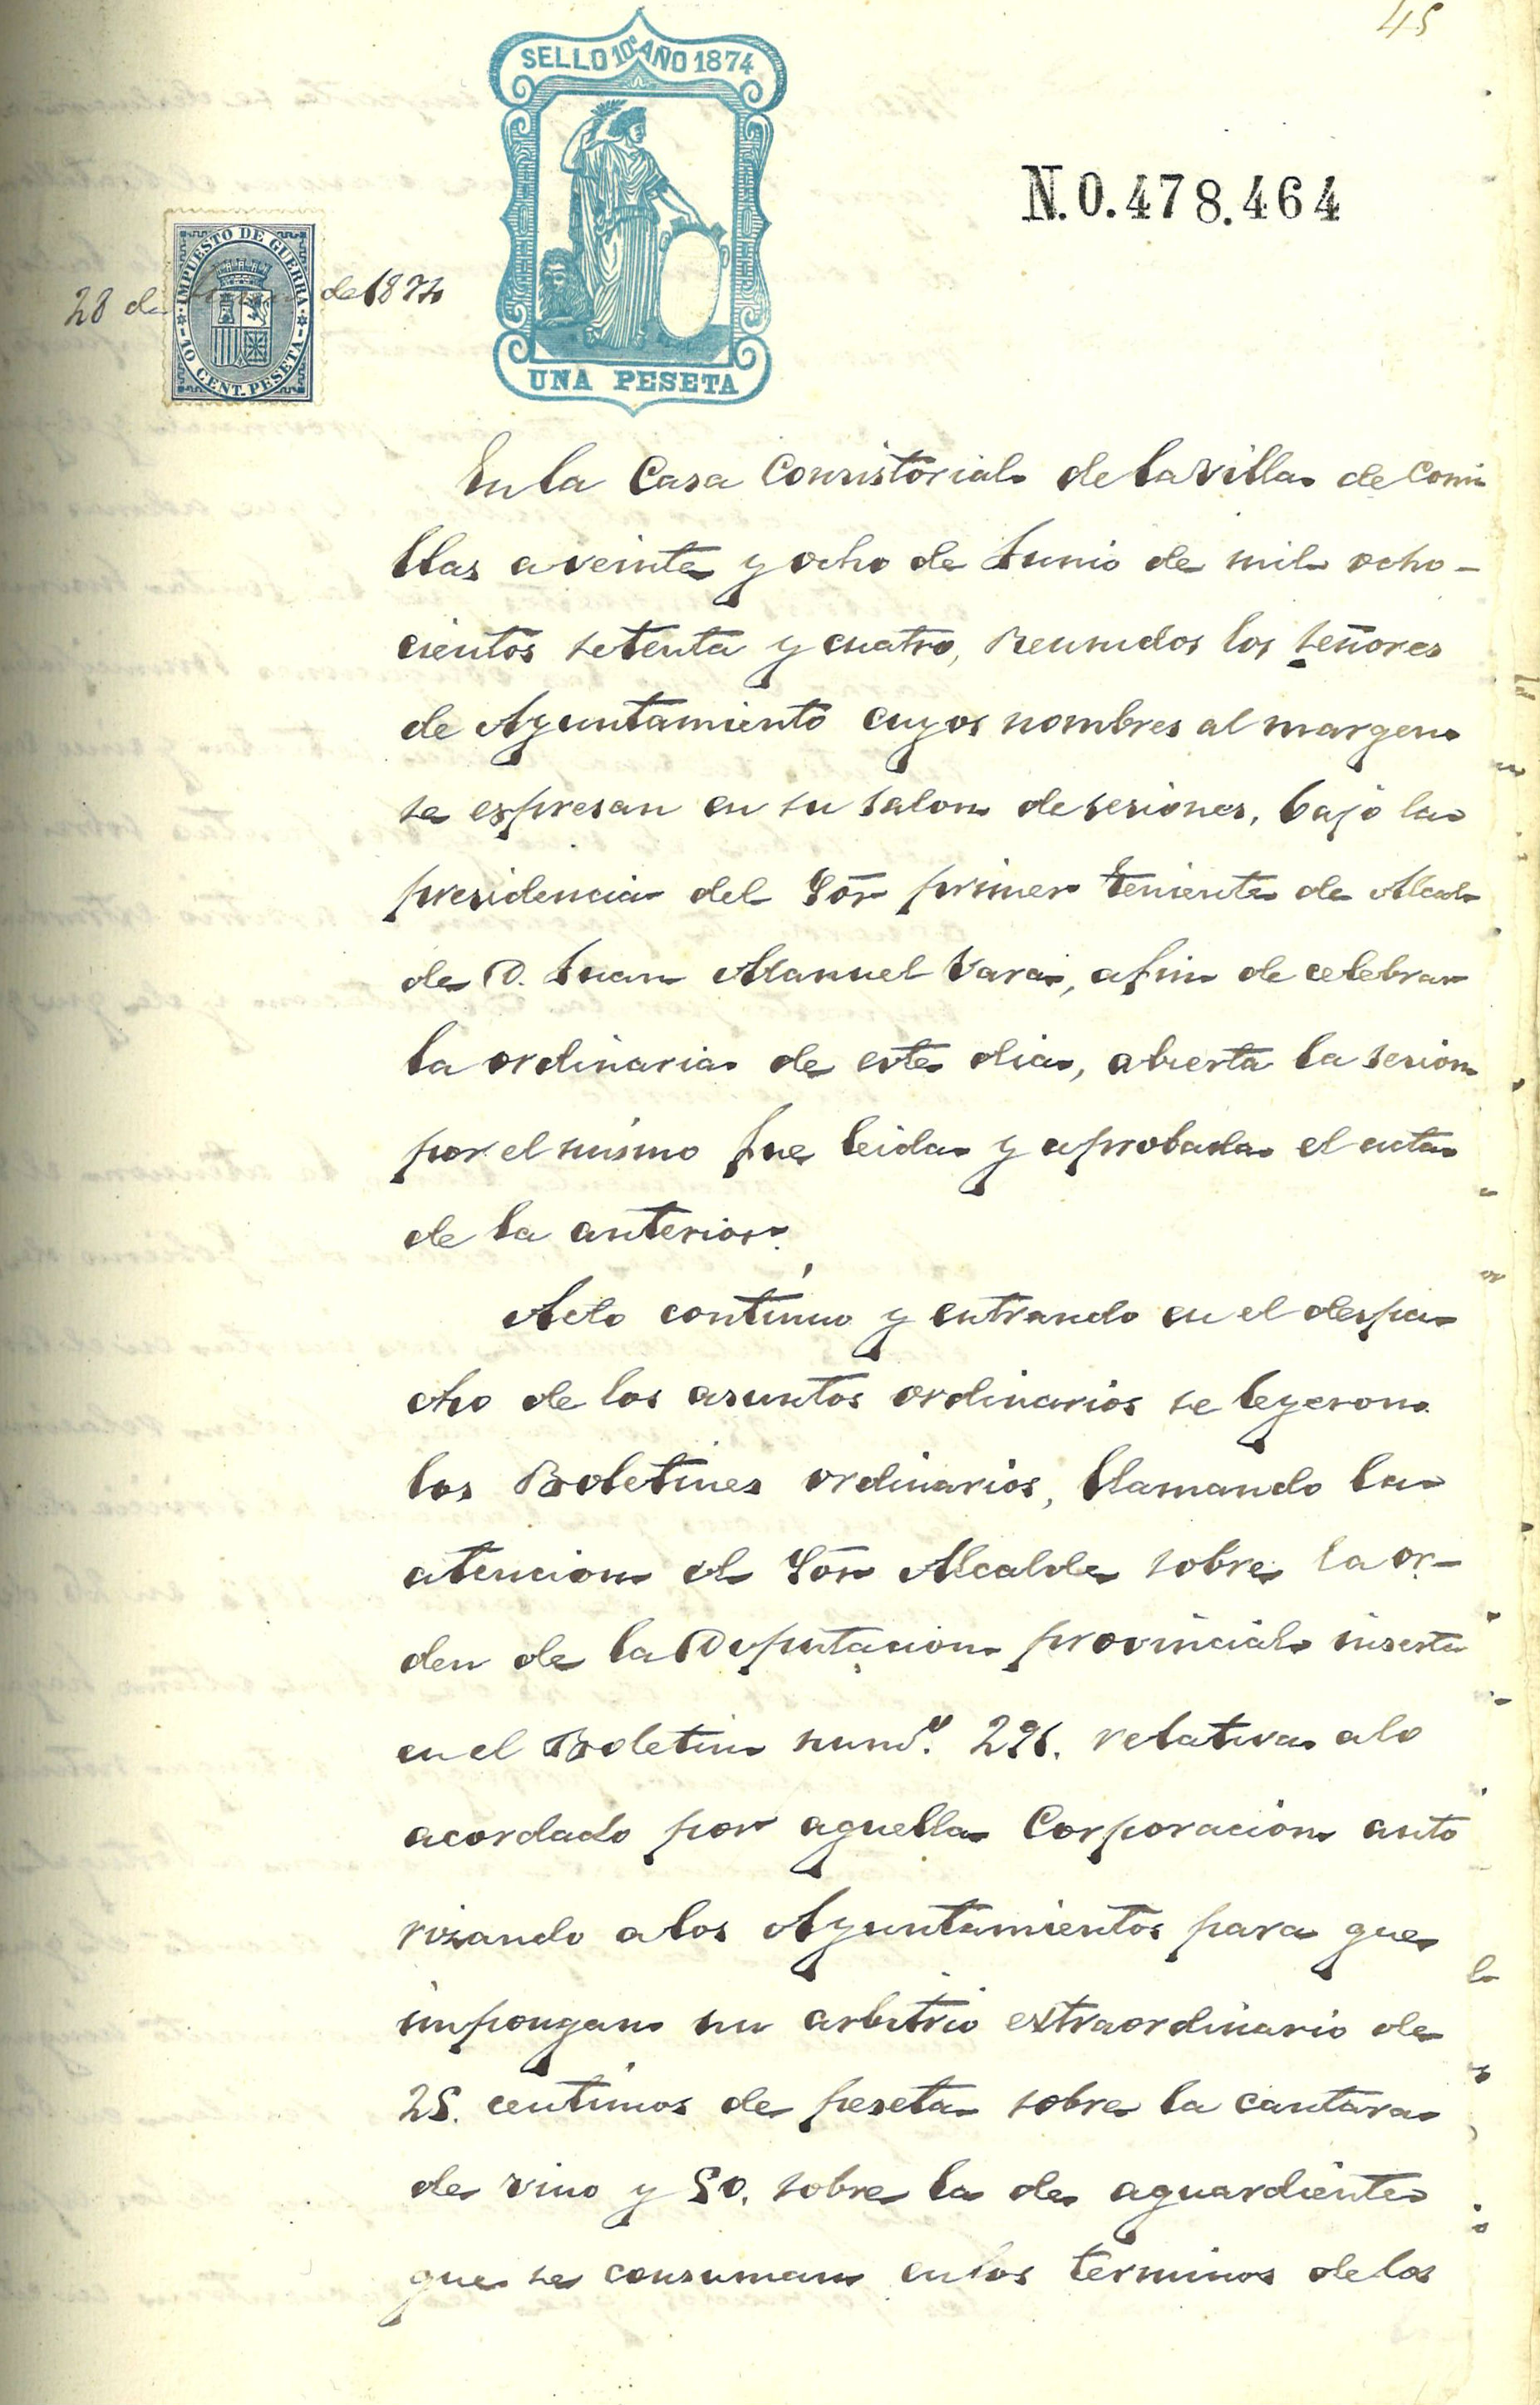 45
SELLO 10º AÑO 1874
N.0.478.464
IMPUESTO DE GUERRA
28 de de 1874
10 CENT. PESETA
UNA PESETA
En la Casa Consistorial de la Villa de Comi
llas a veinte y ocho de Junio de mil ocho-
cientos setenta y cuatro, Reunidos los señores
de Ayuntamiento cuyos nombres al margen
se espresan en su salon de sesiones, bajo la
presidencia del Sor primer teniente de Alcal
de D. Juan Manuel Vara, a fin de celebrar
la ordinaria de este dia, abierta la sesion
por el mismo fue leida y aprobada el acta
de la anterior.
Acto contínuo y entrando en el despa
cho de los asuntos ordinarios se leyeron
los Boletines ordinarios, llamando la
atencion el Sor Alcalde sobre la or-
den de la Diputacion provincial inserta
en el Boletin num.º 296. relativa a lo
acordado por aquella Corporacion auto
rizando a los Ayuntamientos para que
impongan un arbitrio extraordinario de
25. centimos de peseta sobre la cantara
de vino y 50. sobre la de aguardiente
que se consuman en los terminos de los